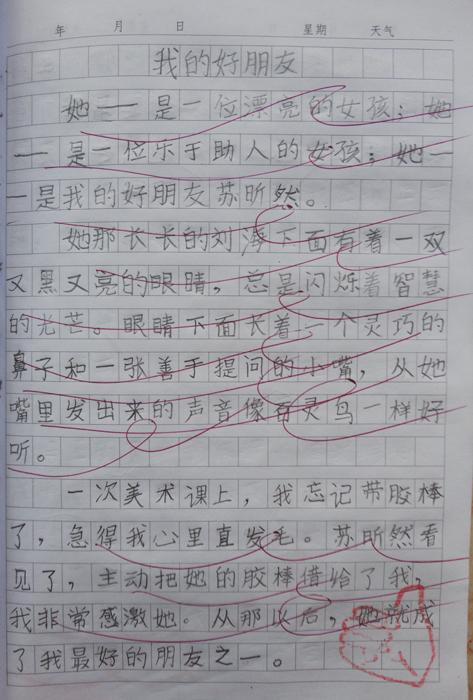 年 月 日 星期 天气
我的好朋友
她——是一位漂亮的女孩；她
——是一位乐于助人的女孩；她—
—是我的好朋友苏昕然。
她那长长的刘海下面有着一双
又黑又亮的眼睛，总是闪烁着智慧
的光芒。眼睛下面长着一个灵巧的
鼻子和一张善于提问的小嘴，从她
嘴里发出来的声音像百灵鸟一样好
听。
一次美术课上，我忘记带胶棒
了，急得我心里直发毛。苏昕然看
见了，主动把她的胶棒借给了我，
我非常感激她。从那以后，她就成
了我最好的朋友之一。